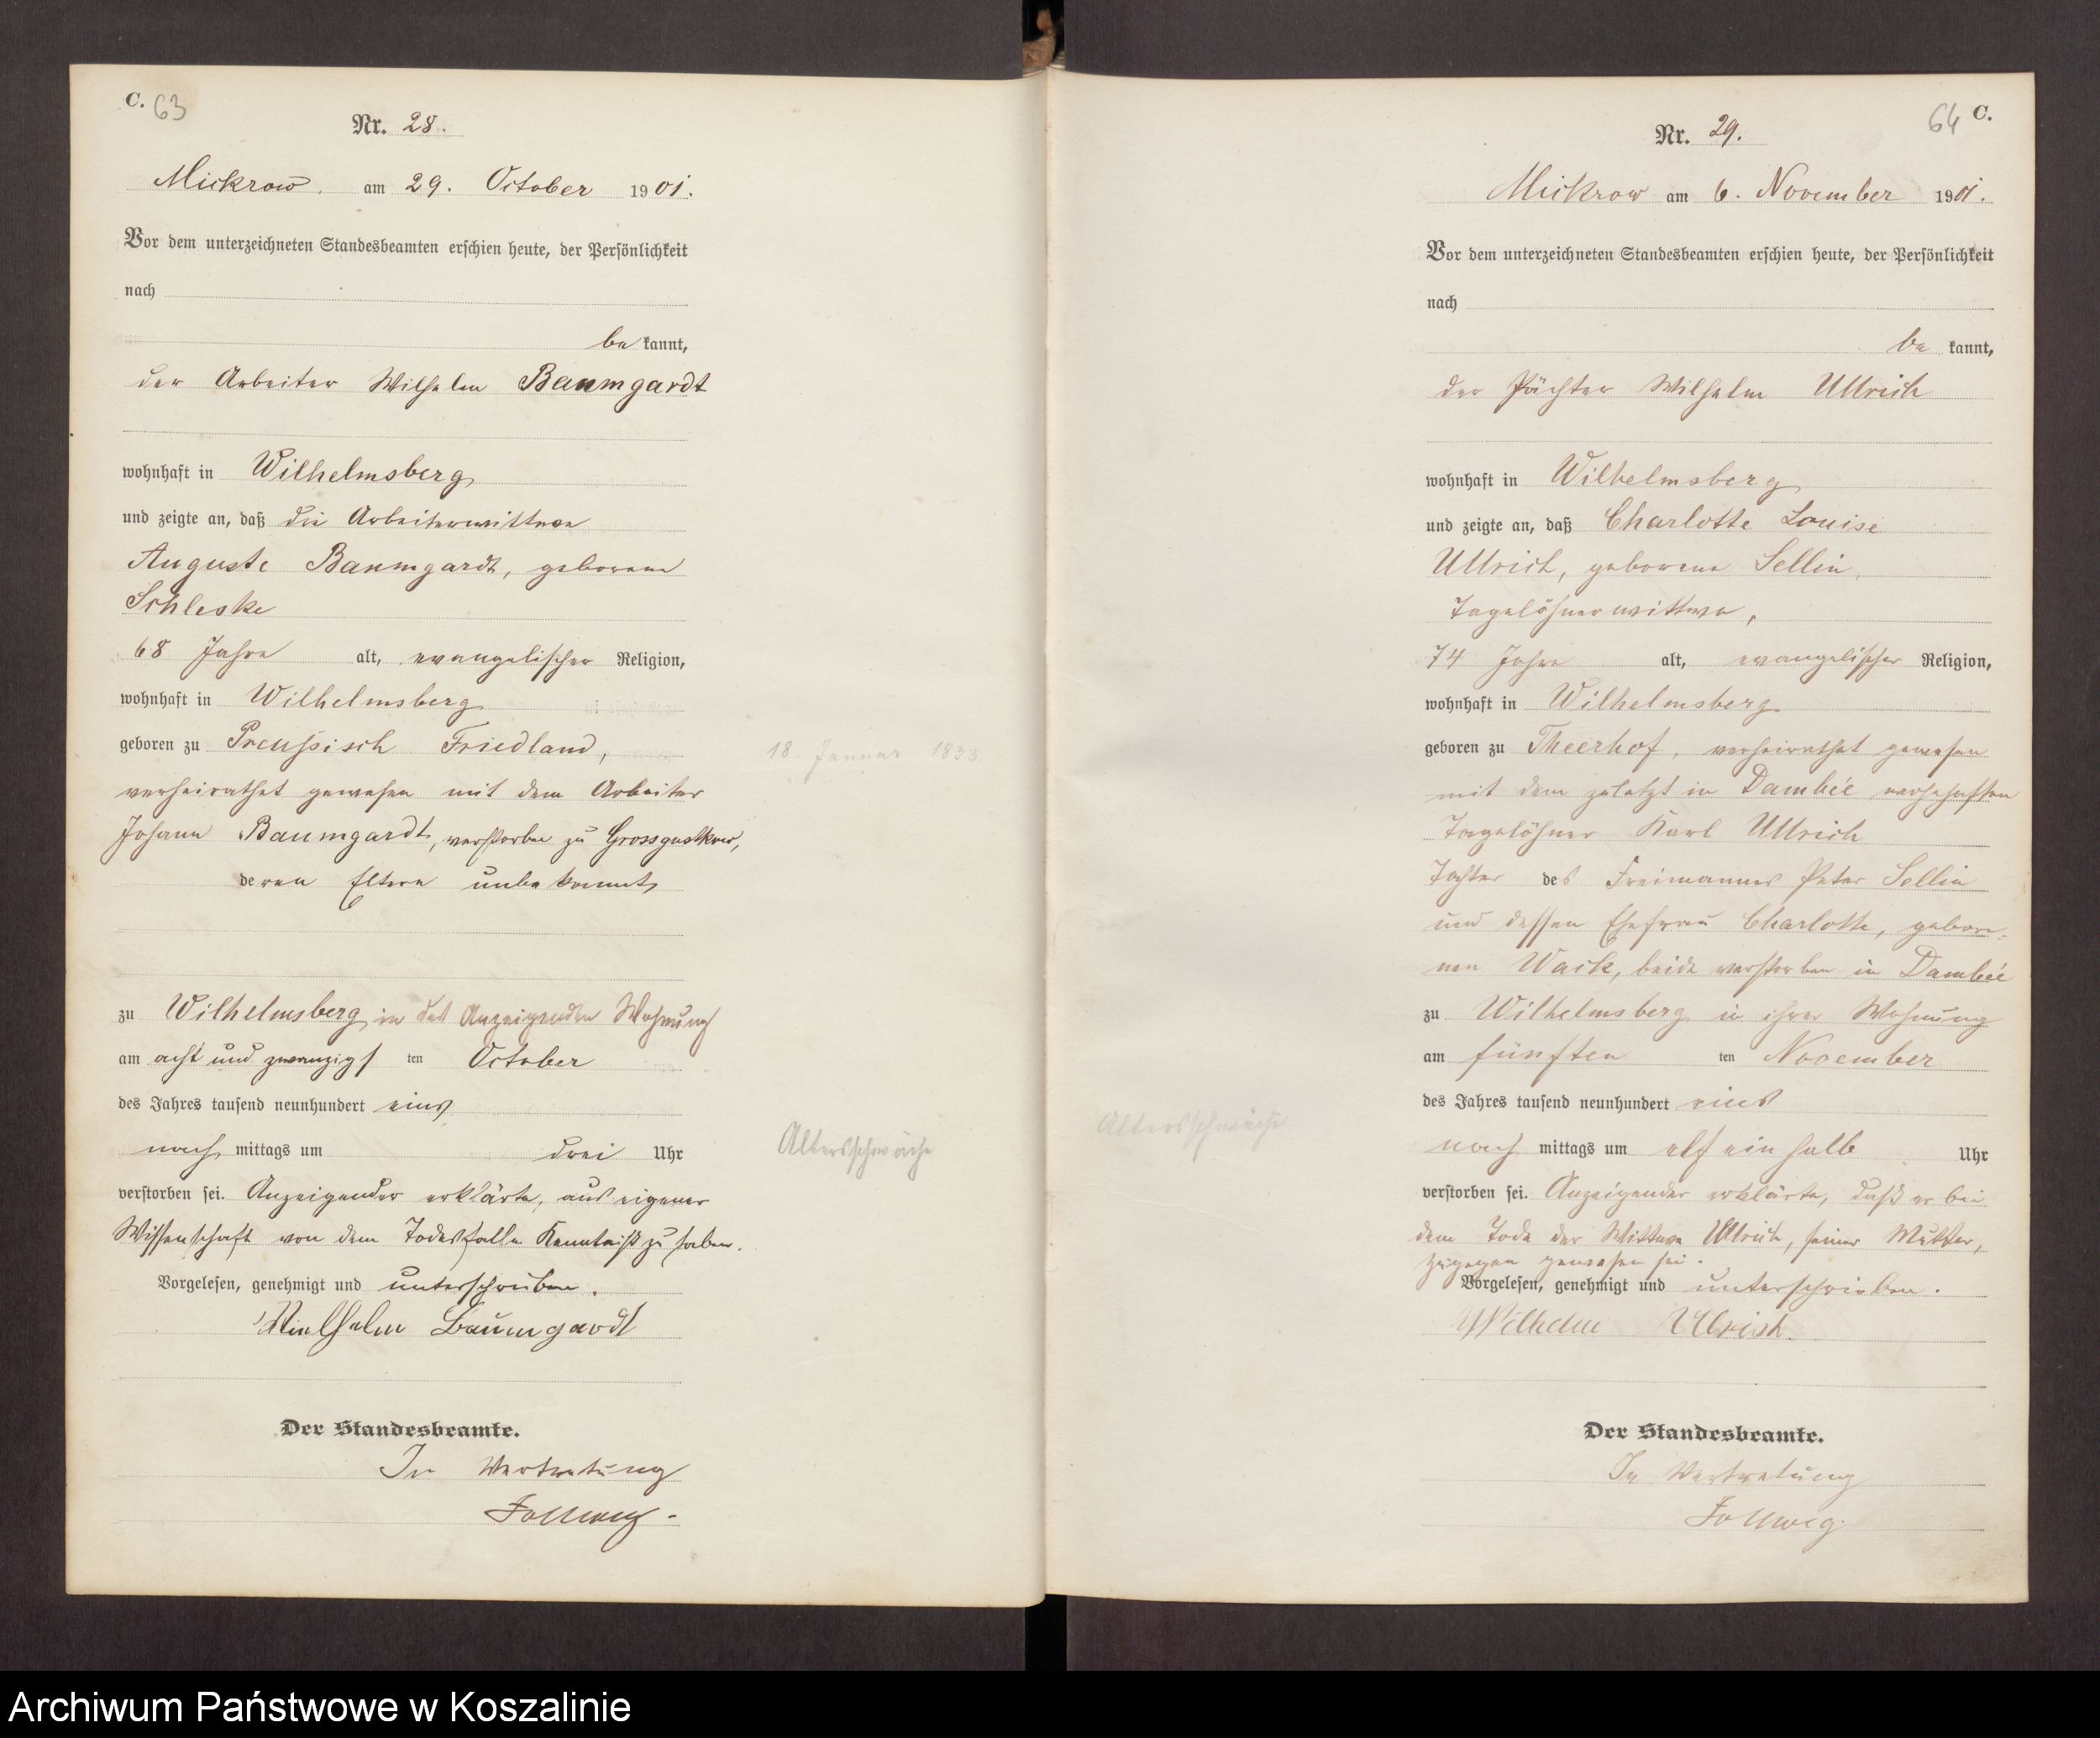 C. 63
Nr. 28.
Mickrow. am 29. October 1901.
Vor dem unterzeichneten Standesbeamten erschien heute, der Persönlichkeit
nach
be kannt,
der Arbeiter Wilhelm Baumgardt
wohnhaft in Wilhelmsberg
und zeigte an, daß die Arbeiterwittwe
Auguste Baumgardt, geborene
Schleske
68 Jahre alt, evangelischer Religion,
wohnhaft in Wilhelmsberg
geboren zu Preußisch Friedland, 18. Januar 1833
verheirathet gewesen mit dem Arbeiter
Johann Baumgardt, verstorben zu Grossgustkow,
deren Eltern unbekannt,
zu Wilhelmsberg in des Anzeigenden Wohnung
am acht und zwanzigs ten October
des Jahres tausend neunhundert eins
nach mittags um drei Uhr Altersschwäche
verstorben sei. Anzeigender erklärte, aus eigener
Wissenschaft von dem Todesfalle Kenntniß zu haben.
Vorgelesen, genehmigt und unterschrieben.
Wielhelm Baumgardt
Der Standesbeamte.
In Vertretung
Follweg.
64 C.
Nr. 29.
Mickrow am 6. November 1901.
Vor dem unterzeichneten Standesbeamten erschien heute, der Persönlichkeit
nach
be kannt,
der Pächter Wilhelm Ullrich
wohnhaft in Wilhelmsberg
und zeigte an, daß Charlotte Louise
Ullrich, geborene Sellin,
Tagelöhnerwittwe,
74 Jahre alt, evangelischer Religion,
wohnhaft in Wilhelmsberg
geboren zu Theerhof, verheirathet gewesen
mit dem zuletzt in Dambée
Tagelöhner Karl Ullrich
Tochter des Freimannes Peter Sellin
und dessen Ehefrau Charlotte, gebore-
nen Wack, beide verstorben in Dambée
zu Wilhelmsberg in ihrer Wohnung
am fünften ten November
des Jahres tausend neunhundert eins
Altersschwäche nach mittags um elf ein halb Uhr
verstorben sei. Anzeigender erklärte, daß er bei
dem Tode der Wittwe Ullrich, seiner Mutter,
zugegen gewesen sei.
Vorgelesen, genehmigt und unterschrieben.
Wilhelm Ullrich.
Der Standesbeamte.
In Vertretung
Follweg.
Archiwum Państwowe w Koszalinie